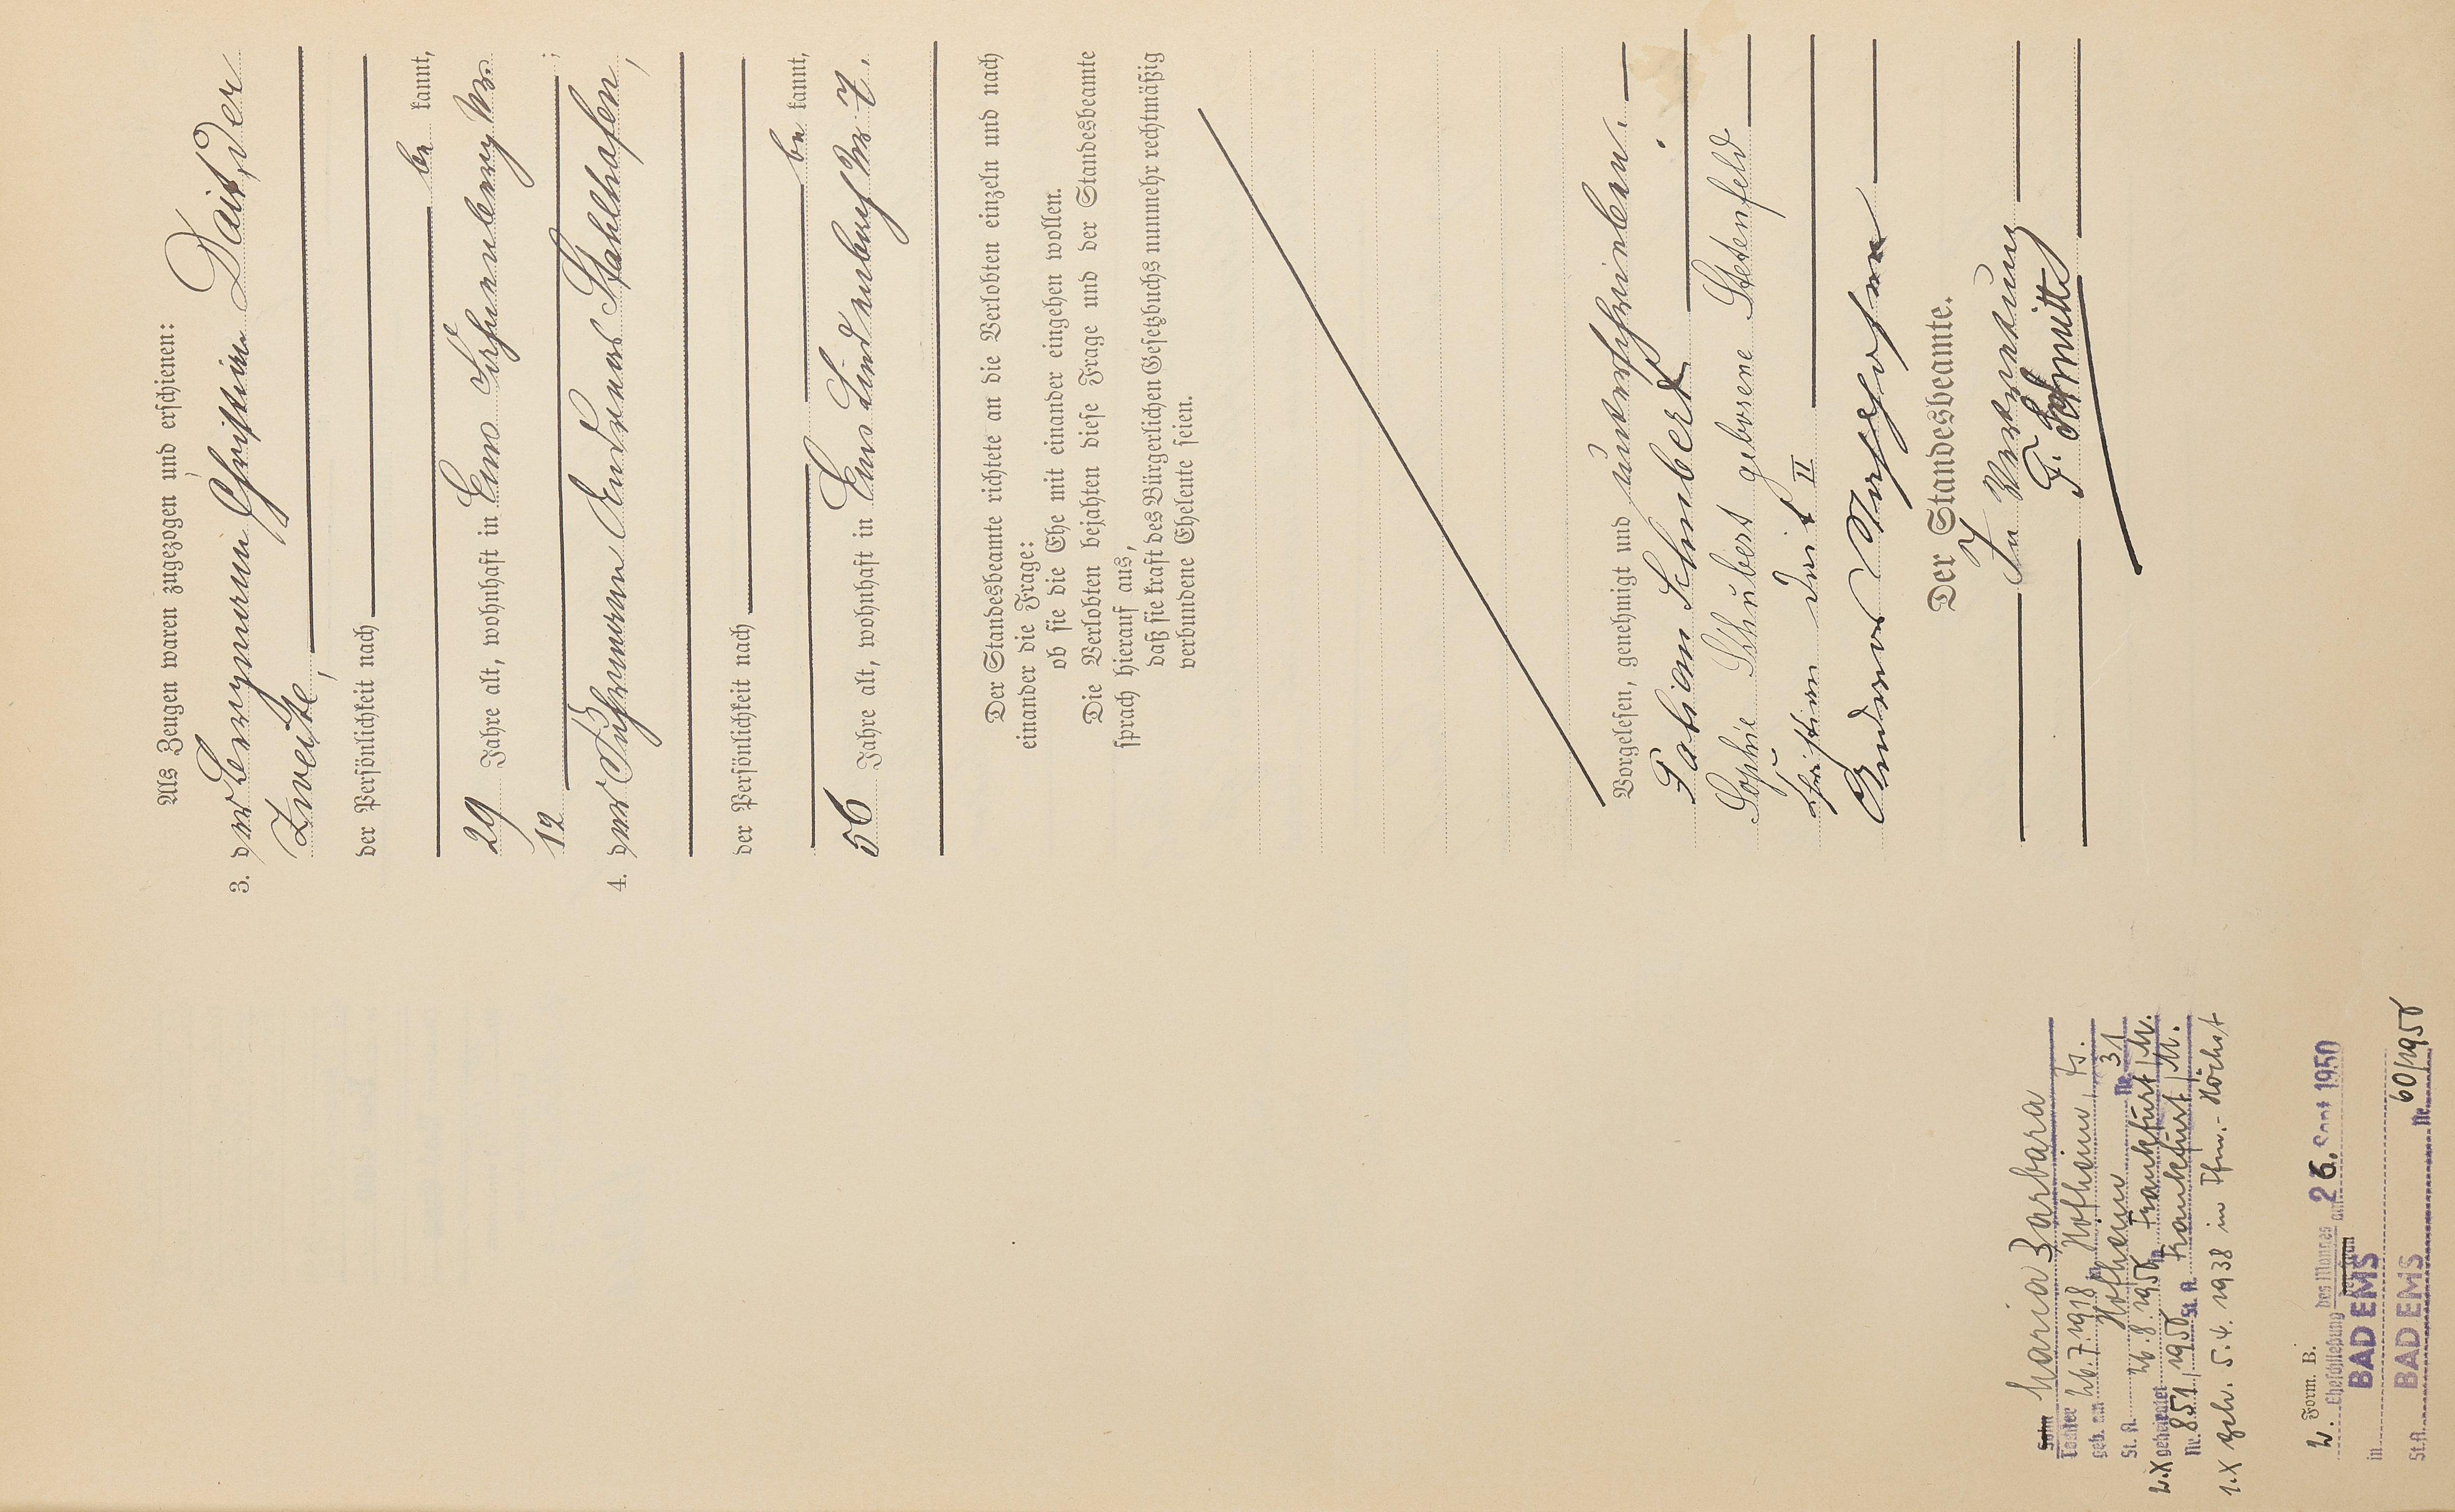 Als Zeugen waren zugezogen und erschienen:
3. der Bergmann Christian Dait, der
Zweite,
der Persönlichkeit nach
be kannt,
29 Jahre alt, wohnhaft in Ems Nr.
12 ;
4. der Fuhrmann Andreas Stahlhofen,
der Persönlichkeit nach
be kannt,
56 Jahre alt, wohnhaft in Ems Lindenbach Nr. 7.
Der Standesbeamte richtete an die Verlobten einzeln und nach
einander die Frage:
ob sie die Ehe mit einander eingehen wollen.
Die Verlobten bejahten diese Frage und der Standesbeamte
sprach hierauf aus,
daß sie kraft des Bürgerlichen Gesetzbuchs nunmehr rechtmäßig
verbundene Eheleute seien.
Vorgelesen, genehmigt und unterschrieben.
Fabian Schubert
Sophie Schubert geborene Stetenfeld
Christian Dait II
Andreas Stahlhofen
Der Standesbeamte.
In Vertretung
F. Schmitt
Sohn Maria Barbara
Tochter
geb. am 26.7.1918 in Hofheim, Ts.
St. A. Hofheim Nr. 31
2.X geheiratet 26.8.1950 in Frankfurt/M.
Nr. 851/1950 St. A. Frankfurt/M.
1.X geh. 5.4.1938 in Ffm.-Höchst
Form. B.
2. Eheschließung des Mannes am 26. Sept 1950
der Frau
in BAD EMS
St.A. BAD EMS Nr. 60/1950